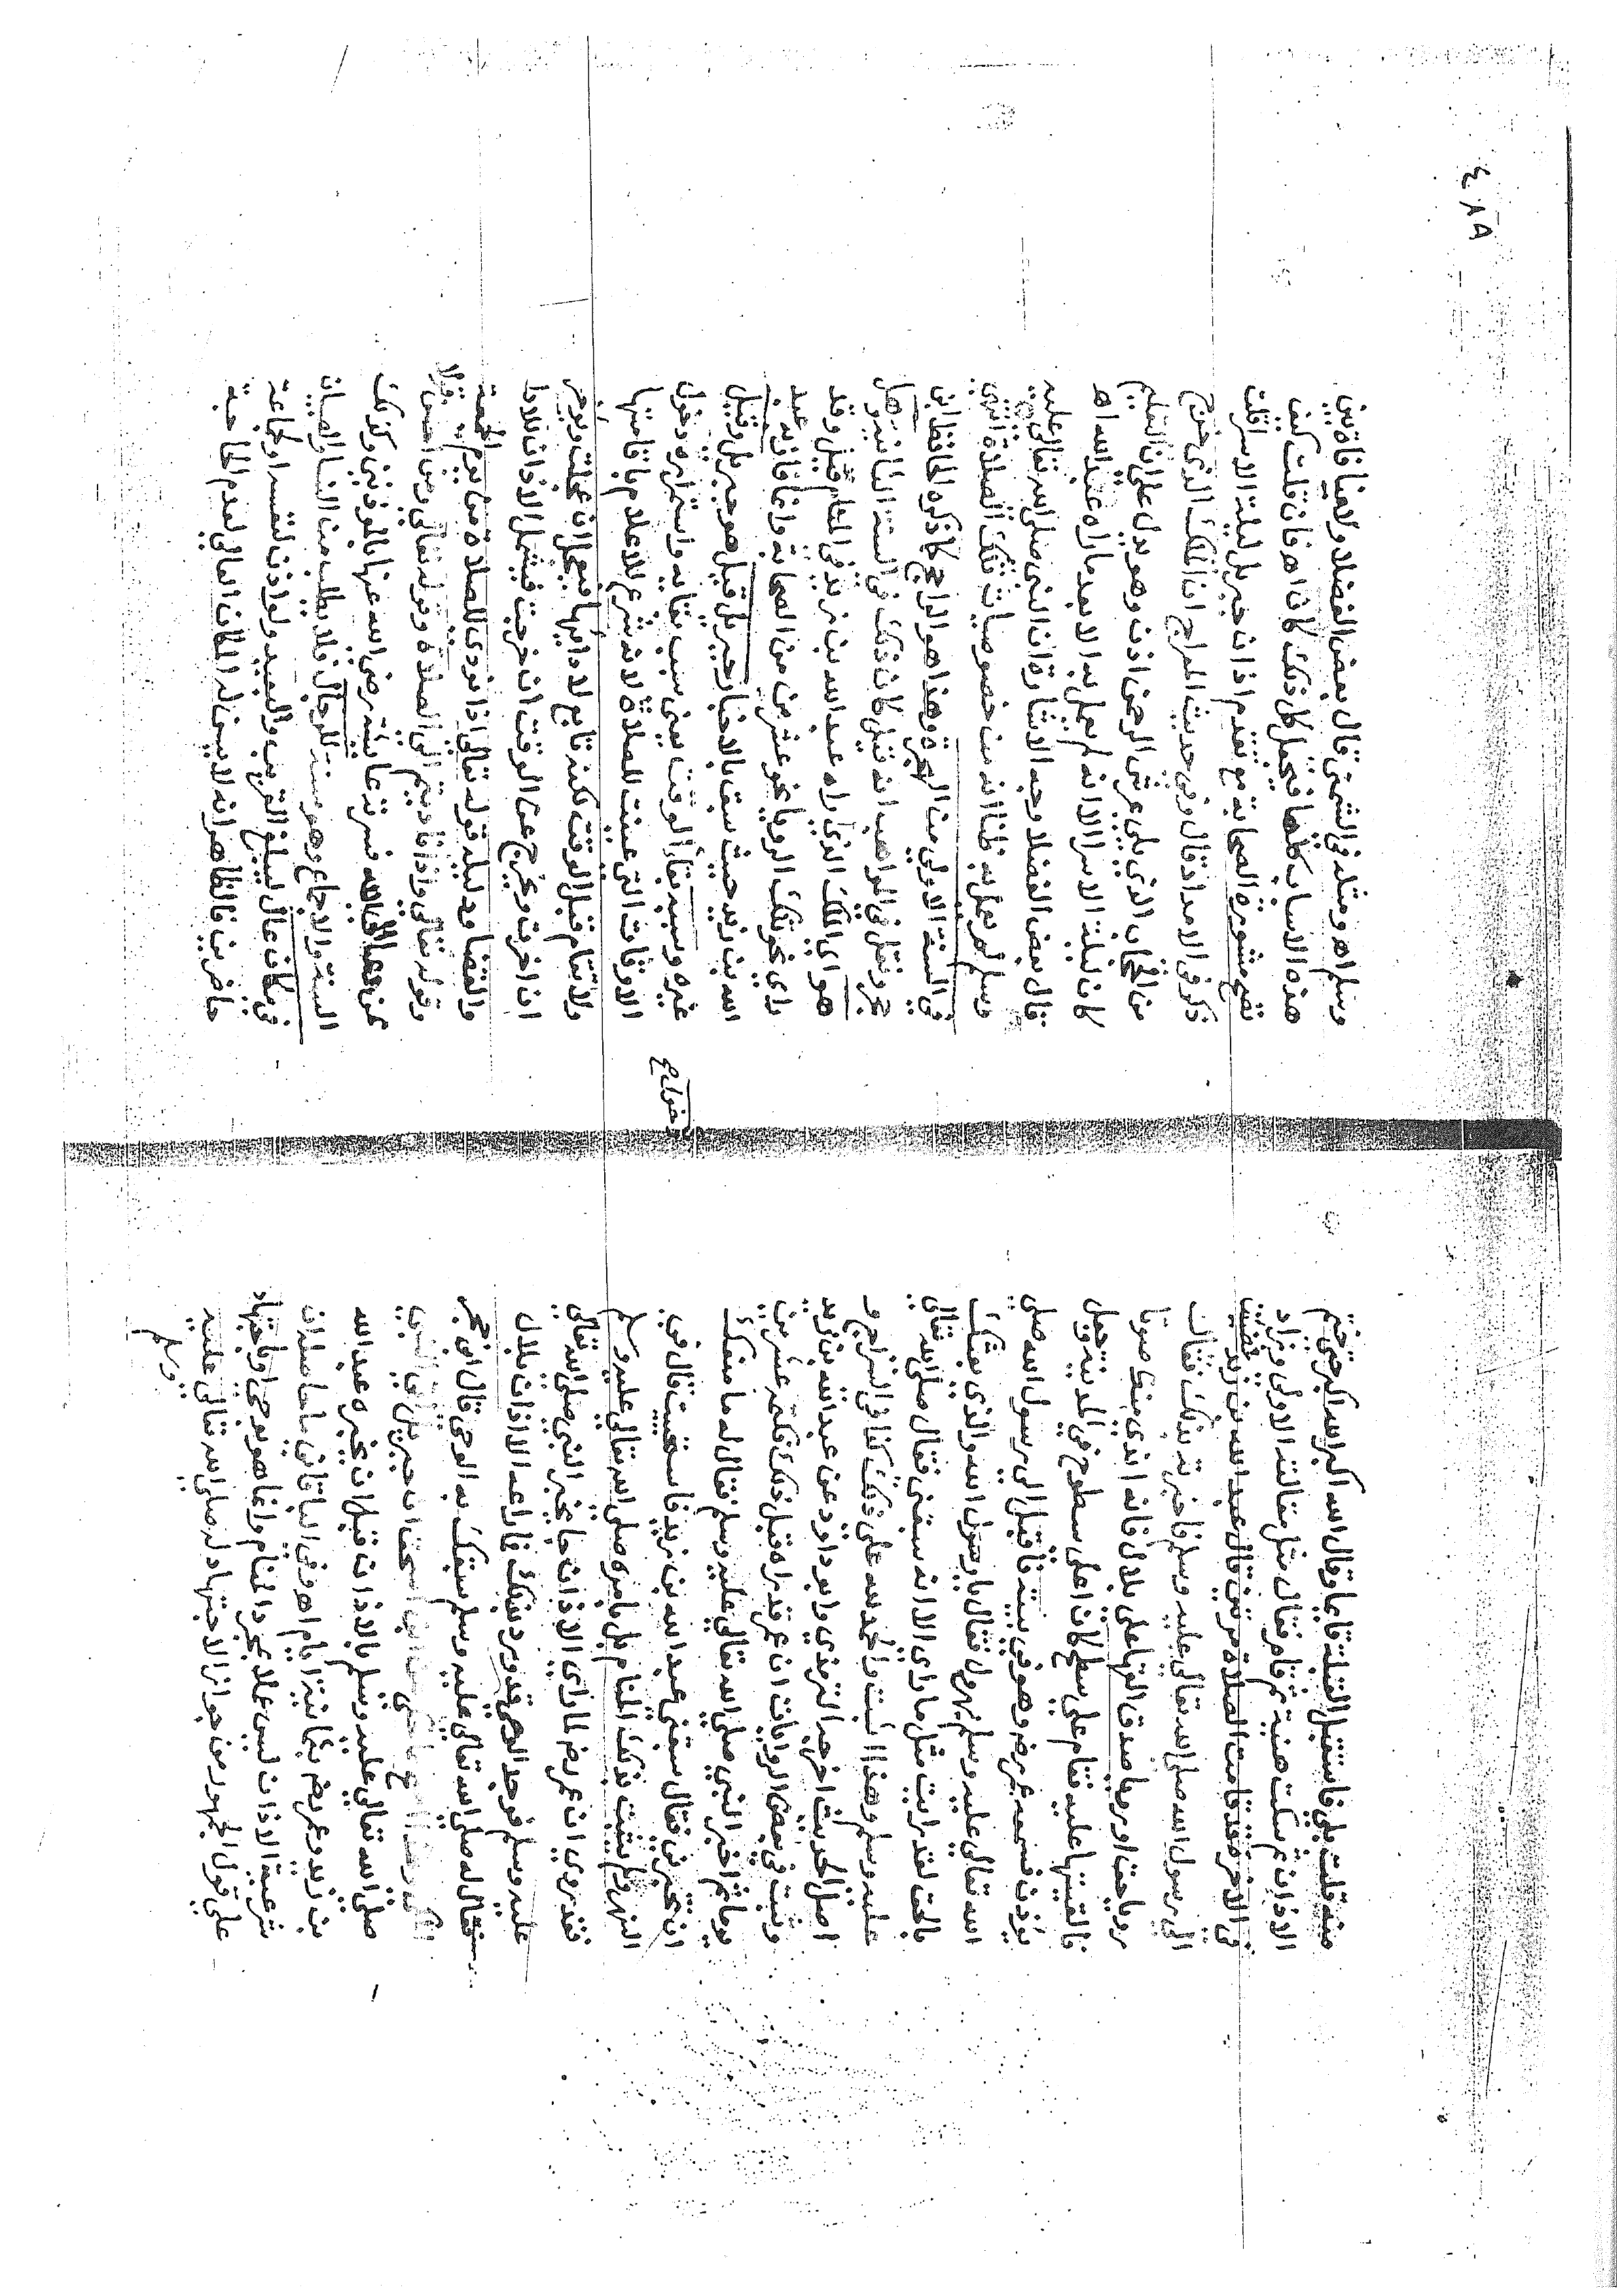 منه قلت بلى فاستقبل القبلة قائما وقال الله اكبر الله اكبر حتى ختم
الاذان ثم سكت هنية ثم قام فقال مثل مقالته الاولى وزاد
في الاخر قد قامت الصلاة مرتين قال عبد الله بن زيد فمضيت
الى رسول الله صلى الله تعالى عليه وسلم فاخبرته بذلك فقال
رويا حق او رويا صدق القها على بلال فانه اندى منك صوتا
فالقيتها عليه فقام على سطح كان اعلى سطوح في المدينة وجعل
يؤذن فسمعه عمر رضى وهو في بيته فاقبل الى رسول الله صلى
الله تعالى عليه وسلم يهرول فقال يا رسول الله والذي بعثك
بالحق لقد رايت مثل ما راى الا انه سبقني فقال صلى الله تعالى
عليه وسلم وهذا اثبت والحمد لله على ذلك كذا في السراج و
اصل الحديث اخرجه الترمذي وابو داود عن عبد الله بن زيد
وثبت في بعض الروايات ان عمر قد راه قبل ذلك فكتمه عشرين
يوما ثم اخبر النبي صلى الله تعالى عليه وسلم فقال له ما منعك
ان تخبرني فقال سبقني عبد الله بن زيد فاستحييت قال في
النهر ولم يثبت بذلك المنام بل بامره صلى الله تعالى عليه وسلم
فقد روي ان عمر رضى لما راى الاذان جاء يخبر النبي صلى الله تعالى
عليه وسلم فوجد الوحي قد ورد بذلك فما راعه الا اذان بلال
فقال له صلى الله تعالى عليه وسلم سبقك به الوحي قال ابن حجر
صلى الله تعالى عليه وسلم بالاذان قبل ان يخبره عبد الله
بن زيد وعمر رضى بثمانية ايام اه وفي الباقاني ما حاصله ان
شرعية الاذان ليس عملا بمجرد المنام وانما هو بوحي او باجتهاد
على قول الجمهور من جواز الاجتهاد له صلى الله تعالى عليه
وسلم
٤٨٨
وسلم اه ومثله في الشمني قال بعض الفضلاء ولا منافاة بين
هذه الاسباب كلها فيجعل كل ذلك كان اه فان قلت كيف
تصح مشورة الصحابة مع تقدم اذان جبريل ليلة الاسراء قلت
ذكر في الامداد قال وفي حديث المعراج ان الملك الذي خرج
من الحجاب الذي يلي عرش الرحمن اذن وهو يدل على ان التعليم
كان ليلة الاسراء الا انه لم يعمل به الا بعد ما راه عبد الله اه
قال بعض الفضلاء وجه الاشارة ان النبي صلى الله تعالى عليه
وسلم لم يعمل به ظنا انه من خصوصيات تلك الصلاة انتهى
في السنة الاولى من الهجرة وهذا هو الراجح كما ذكره الحافظ ابن
حجر ونقل في المواهب انه قيل كان ذلك في السنة الثانية وهل
هو اي الملك الذي راه عبد الله بن زيد في المنام قيل وقد
راى نحو تلك الرويا نحو عشرين من الصحابة وانما قارنه عبد
الله بن زيد حيث سبق بالاخبار جبريل قيل هو جبريل وقيل
غيره وسببه بقاء الوقت يعني سبب بقائه واستمراره دخول
الاوقات التي عينت للصلاة لانه شرع للاعلام باقامتها
ولا تقام قبل الوقت لكنه تابع لادائها فيعجل ان عجلت ويوخر
ان اخرت ويخرج عن الوقت ان خرجت فيشمل الاذان للاداء
والقضاء ودليله قوله تعالى اذا نودي للصلاة من يوم الجمعة
وقوله تعالى واذا ناديتم الى الصلاة وقوله تعالى ومن احسن قولا
ممن دعا الى الله فسرته عائشة رضى الله عنها بالمؤذنين وكذلك
السنة والاجماع وهو سنة للرجال فلا يطلب من النساء والصبيان
في مكان عال ليبلغ القريب والبعيد ولو اذن لنفسه او لجماعة
حاضرين فالظاهر انه لا يسن له المكان العالي لعدم الحاجة
دخول